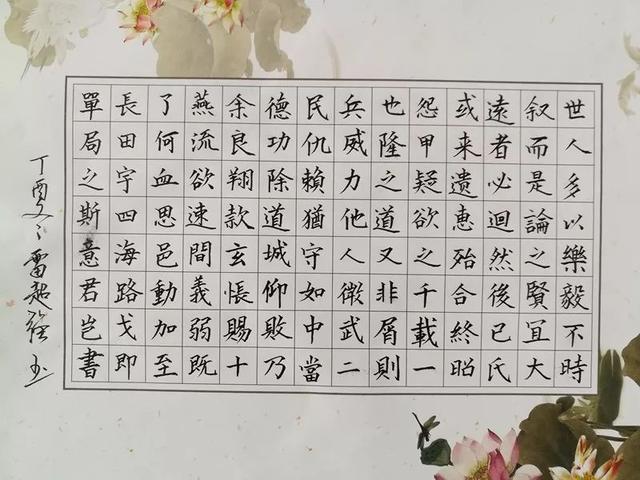 世人多以樂毅不時
叙而是論之賢宜大
遠者必迴然後已氏
或来遺惠殆合終昭
怨甲疑欲之千載一
也隆之道又非屑則
兵威力他人微武二
民仇賴猶守如中當
德功除道城仰敗乃
余良翔款玄悵賜十
燕流欲速間義弱既
了何血思邑動加至
長田宇四海路戈即
單局之斯意君岂書
丁酉夏雷强书